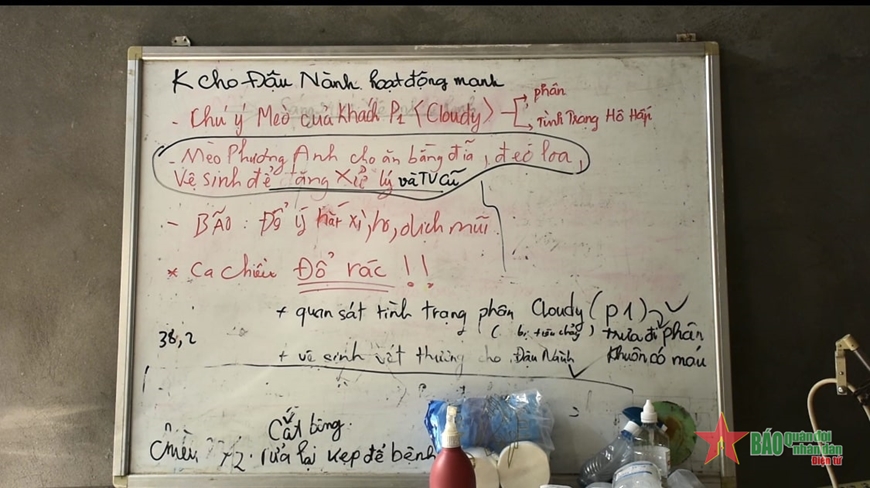 K cho Đậu Nành hoạt động mạnh
- Chú ý Mèo của Khách P1 <Cloudy> phân
Tình Trạng Hô Hấp
- Mèo Phương Anh cho ăn bằng đĩa, đeo loa,
Vệ sinh để tăng Xử lý và TV cũ
- BÃO: Để ý hắt xì, ho, dịch mũi
* Ca chiều Đổ rác !!
+ quan sát tình trạng phân Cloudy (P1) trưa đi phân
(bị tiêu chảy) khuôn có máu
38,2
+ vệ sinh vết thương cho Đậu Nành
Cắt băng
Chiều T2. rửa lại kẹp để bệnh
BÁO Quân đội nhân dân Điện tử